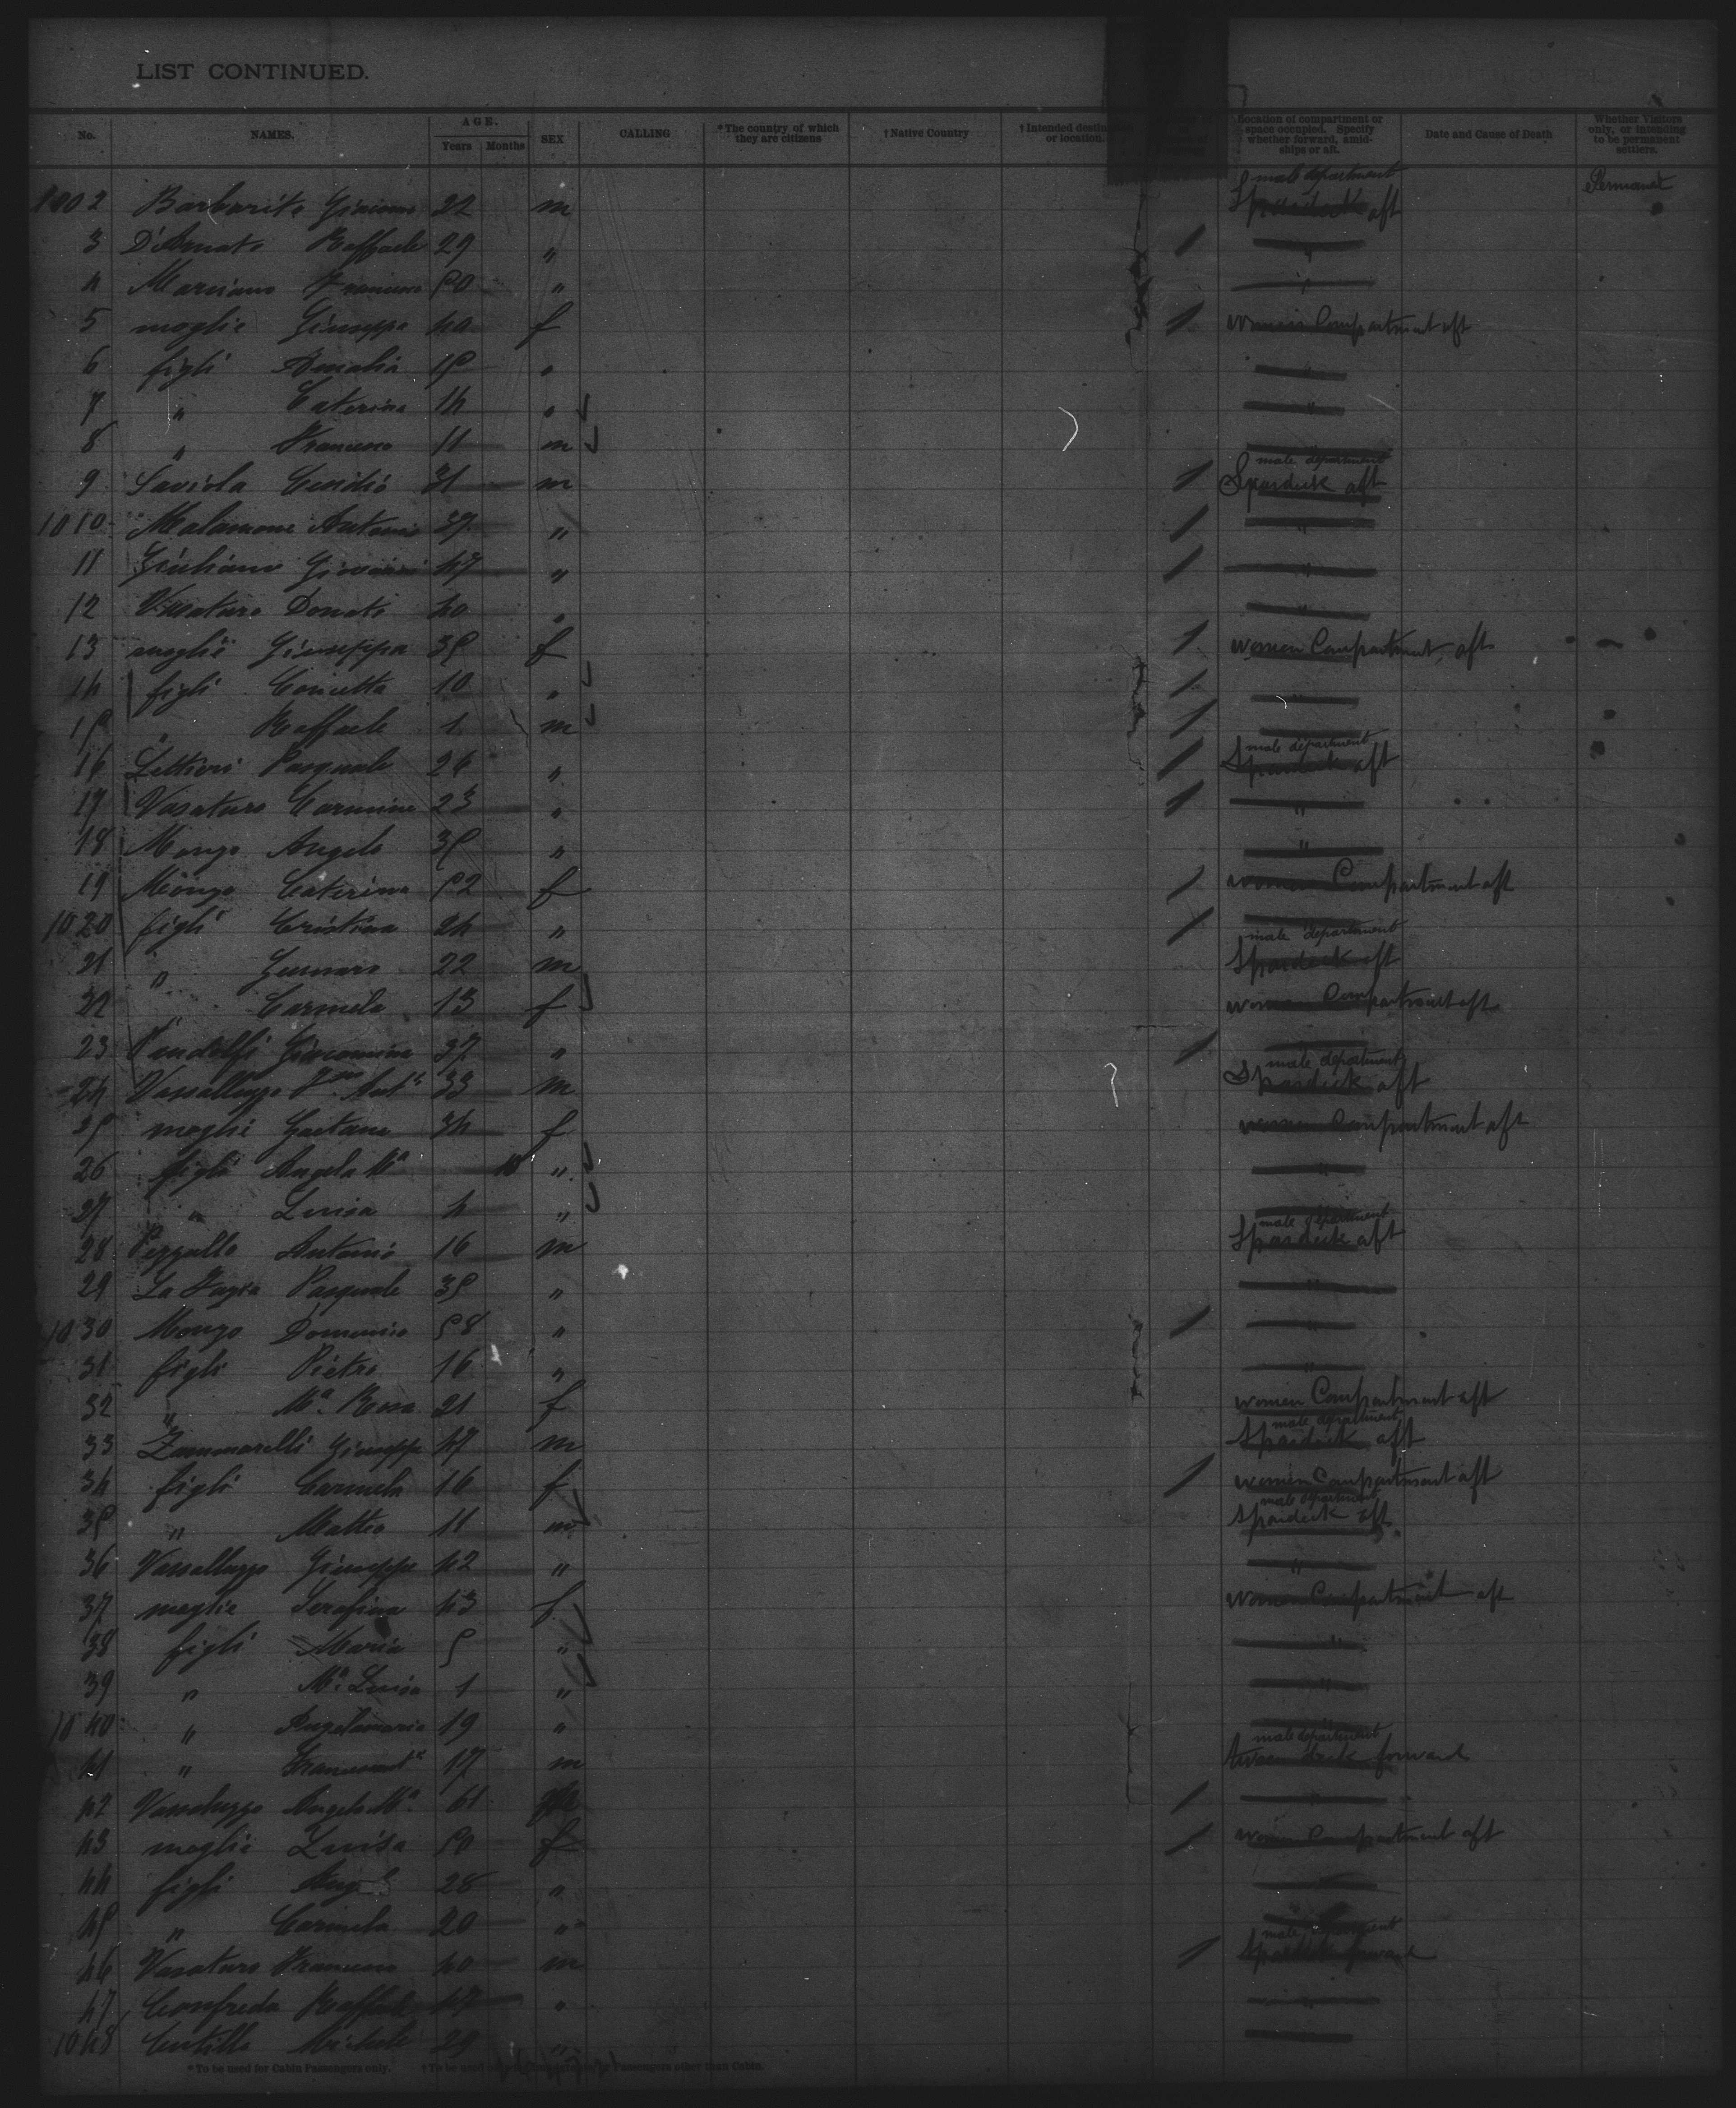 LIST CONTINUED.
No. NAMES. AGE. Years Months SEX CALLING *The country of which they are citizens †Native Country †Intended destin or location. Location of compartment or space occupied. Specify whether forward, amidships or aft. Date and Cause of Death Whether Visitors only, or intending to be permanent settlers.
1002 Barbarito 22 m male department Spardeck aft Permanent
3 D'Amato Raffaele 29 " "
4 Marciano Francesco 50 " "
5 moglie Giuseppa 40 f women Compartment aft
6 figli Amalia 15 " "
7 " Caterina 14 " "
8 " Francesco 11 m
9 Saviola Emidio 31 m male department Spardeck aft
1010 Malamone Antonio 37 " "
11 Giuliano Giovanni 47 " "
12 Vasaturo Donato 40 " "
13 moglie Giuseppa 35 f women Compartment aft
14 figli Concetta 10 " "
15 " Raffaele 1 m
16 Lettieri Pasquale 26 " male department Spardeck aft
17 Vasaturo Carmine 23 " "
18 Mongo Angelo 35 " "
19 Mongo Caterina 52 f women Compartment aft
1020 figli Cristina 24 "
21 " Gennaro 22 m male department Spardeck aft
22 " Carmela 13 f women Compartment aft
23 Pandolfi Giacomina 37 "
24 Vassalluzzo 33 m male department Spardeck aft
25 moglie Gaetana 34 f women Compartment aft
26 figli Angela Mª 10 " "
27 " Luisa 4 "
28 Pezzullo Antonio 16 m male department Spardeck aft
29 La Pasquale 35 " "
1030 Mongo Domenico 58 " "
31 figli Pietro 16 " "
32 " Mª Rosa 21 f women Compartment aft
33 Zammarelli Giuseppe 47 m male department Spardeck aft
34 figli Carmela 16 f women Compartment aft
35 " Matteo 11 m male department Spardeck aft
36 Vassalluzzo Giuseppe 42 " "
37 moglie Serafina 43 f women Compartment aft
38 figli Maria 5 " "
39 " Mª Luisa 1 " "
1040 " Angelamaria 19 " "
41 " 17 m male department tween deck forward
42 Vassaluzzo Angelo Mª 61 m "
43 moglie Luisa 50 f women Compartment aft
44 figli 28 "
45 " Carmela 20 "
46 Vasaturo Francesco 40 m male department Spardeck forward
47 Confreda Raffaele 47 " "
1048 Michele 29 "
*To be used for Cabin Passengers only. †To be used Passengers other than Cabin.